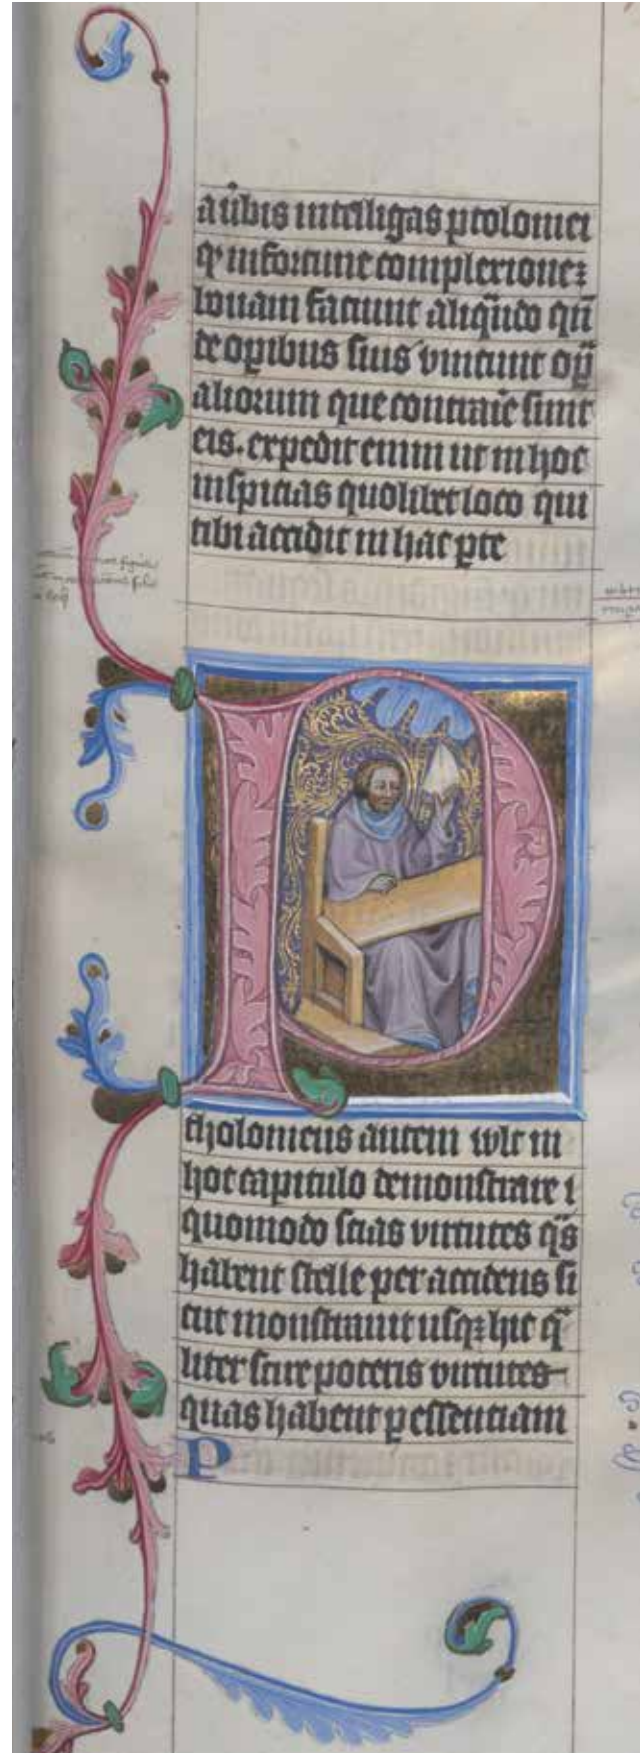 a ūbis intelligas ptolomei
q infortune complexione
bonam faciunt aliqūdo qn̄
de opibus suis vincunt op̄
aliorum que contraie sunt
eis. expedit enim ut in hoc
inspicias quolibet loco qui
tibi accidit in hac pte
P
tholomeus autem wlt in
hoc capitulo demonstrare t
quomodo scias virtutes qs̄
habent stelle per accidens si
cut monstrauit usq; hic q̄
liter scire poteris virtutes
quas habent p essentiam
P